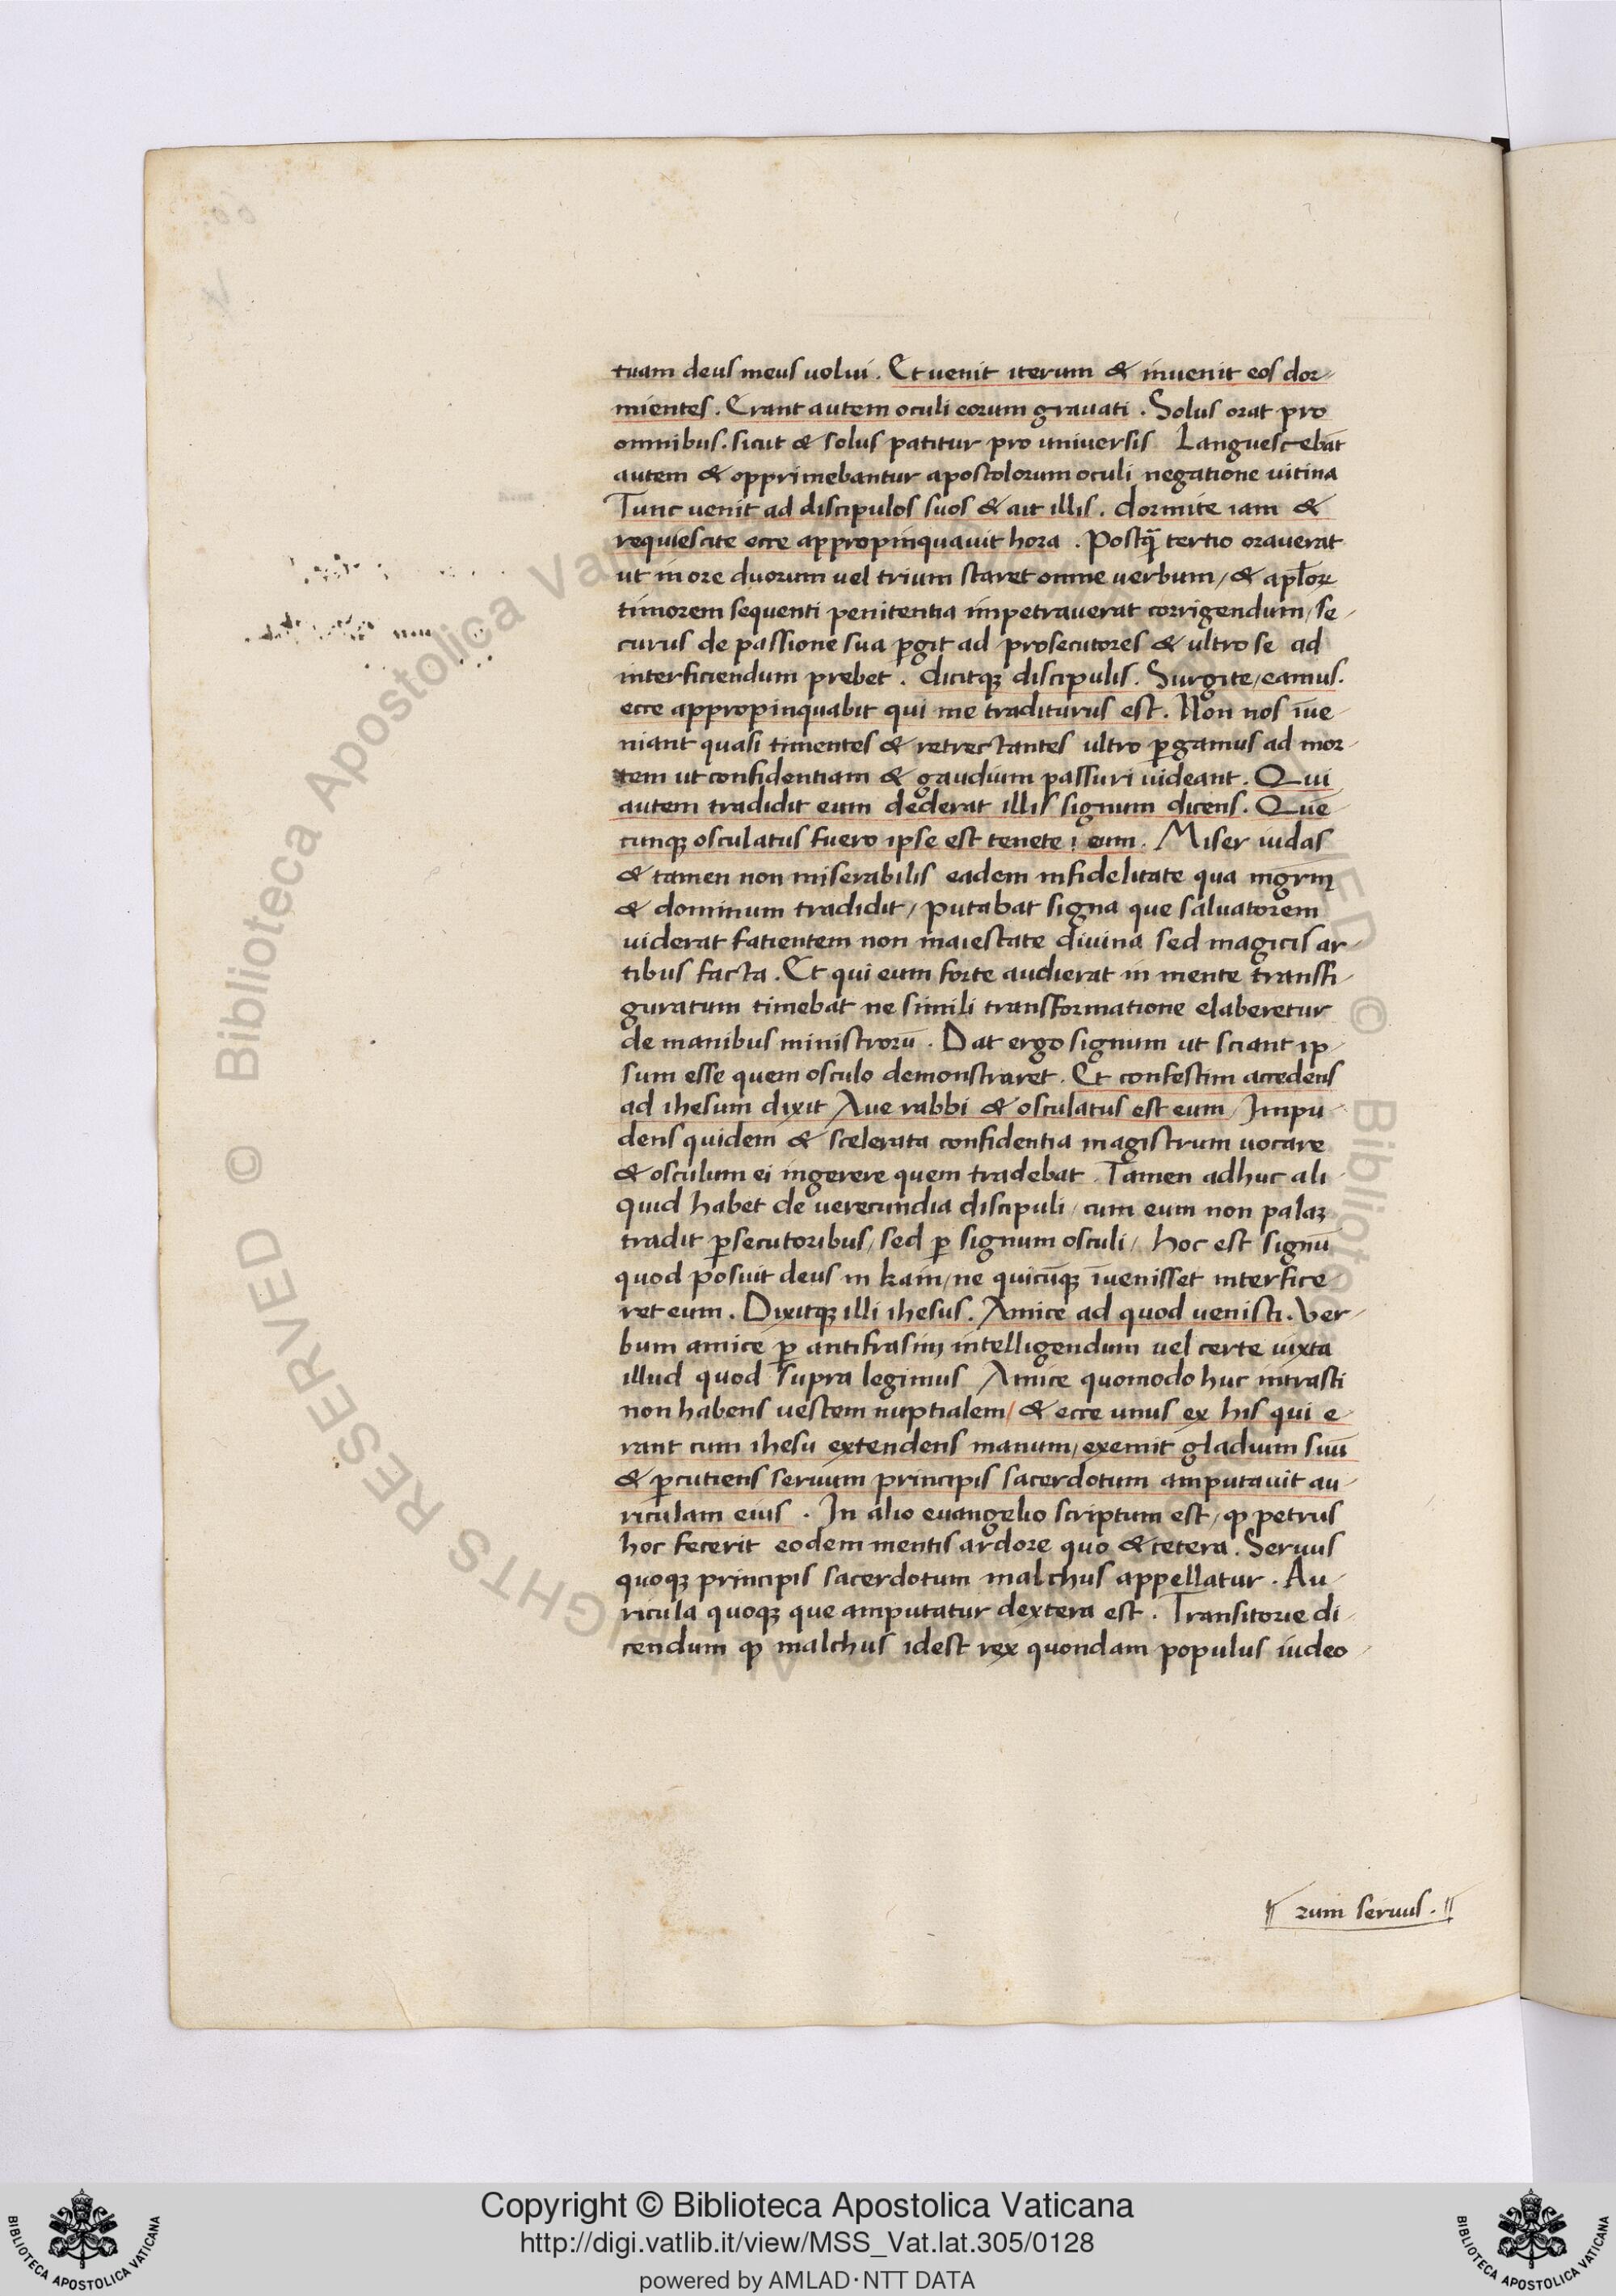 tuam deus meus uolui. Et uenit iterum & inuenit eos dor-
mientes. Erant autem oculi eorum grauati. Solus orat pro
omnibus. sicut & solus patitur pro uniuersis Languescebāt
autem & opprimebantur apostolorum oculi negatione uicina
Tunc uenit ad discipulos suos & ait illis. dormite iam &
requiescite ecce appropinquauit hora. Postq̄ tertio orauerat
ut in ore duorum uel trium staret omne uerbum/ & apl̄oꝝ
timorem sequenti penitentia impetrauerat corrigendum/ se-
curus de passione sua ꝑgit ad prosecutores & ultro se ad
interficiendum prebet. dicitqꝫ discipulis. Surgite/ eamus.
ecce appropinquabit qui me traditurus est. Non nos īue-
niant quasi timentes & retrectantes ultro ꝑgamus ad mor-
tem ut confidentiam & gaudium passuri uideant. Qui
autem tradidit eum dederat illis signum dicens. Que-
cunqꝫ osculatus fuero ipse est tenete eum. Miser iudas
& tamen non miserabilis eadem infidelitate qua
& dominum tradidit/ putabat signa que saluatorem
uiderat facientem non maiestate diuina sed magicis ar-
tibus facta. Et qui eum forte audierat in mente transfi-
guratum timebat ne simili transformatione elaberetur
de manibus ministrorū. Dat ergo signum ut sciant ip-
sum esse quem osculo demonstraret. Et confestim accedens
ad ihesum dixit Aue rabbi & osculatus est eum/ Impu-
dens quidem & scelerata confidentia magistrum uocare
& osculum ei ingerere quem tradebat. Tamen adhuc ali-
quid habet de uerecundia discipuli/ cum eum non palaꝫ
tradit ꝑsecutoribus/ sed ꝑ signum osculi/ hoc est signū
quod posuit deus in kain/ ne quicūqꝫ īuenisset interfice-
ret eum. Dixitqꝫ illi ihesus. Amice ad quod uenisti. Ver-
bum amice ꝑ antifrasim intelligendum uel certe iuxta
illud quod supra legimus Amice quomodo huc intrasti
non habens uestem nuptialem/ & ecce unus ex his qui e-
rant cum ihesu extendens manum/ exemit gladium suū
& ꝑcutiens seruum principis sacerdotum amputauit au-
riculam eius. In alio euangelio scriptum est/ ꝙ petrus
hoc fecerit eodem mentis ardore quo & cetera. Seruus
quoqꝫ principis sacerdotum malchus appellatur. Au-
ricula quoqꝫ que amputatur dextera est. Transitorie di-
cendum ꝙ malchus idest rex quondam populus iudeo-
rum seruus.
© Biblioteca Apostolica Vaticana
RIGHTS RESERVED
Copyright © Biblioteca Apostolica Vaticana
http://digi.vatlib.it/view/MSS_Vat.lat.305/0128
powered by AMLAD·NTT DATA
BIBLIOTECA APOSTOLICA VATICANA
BIBLIOTECA APOSTOLICA VATICANA